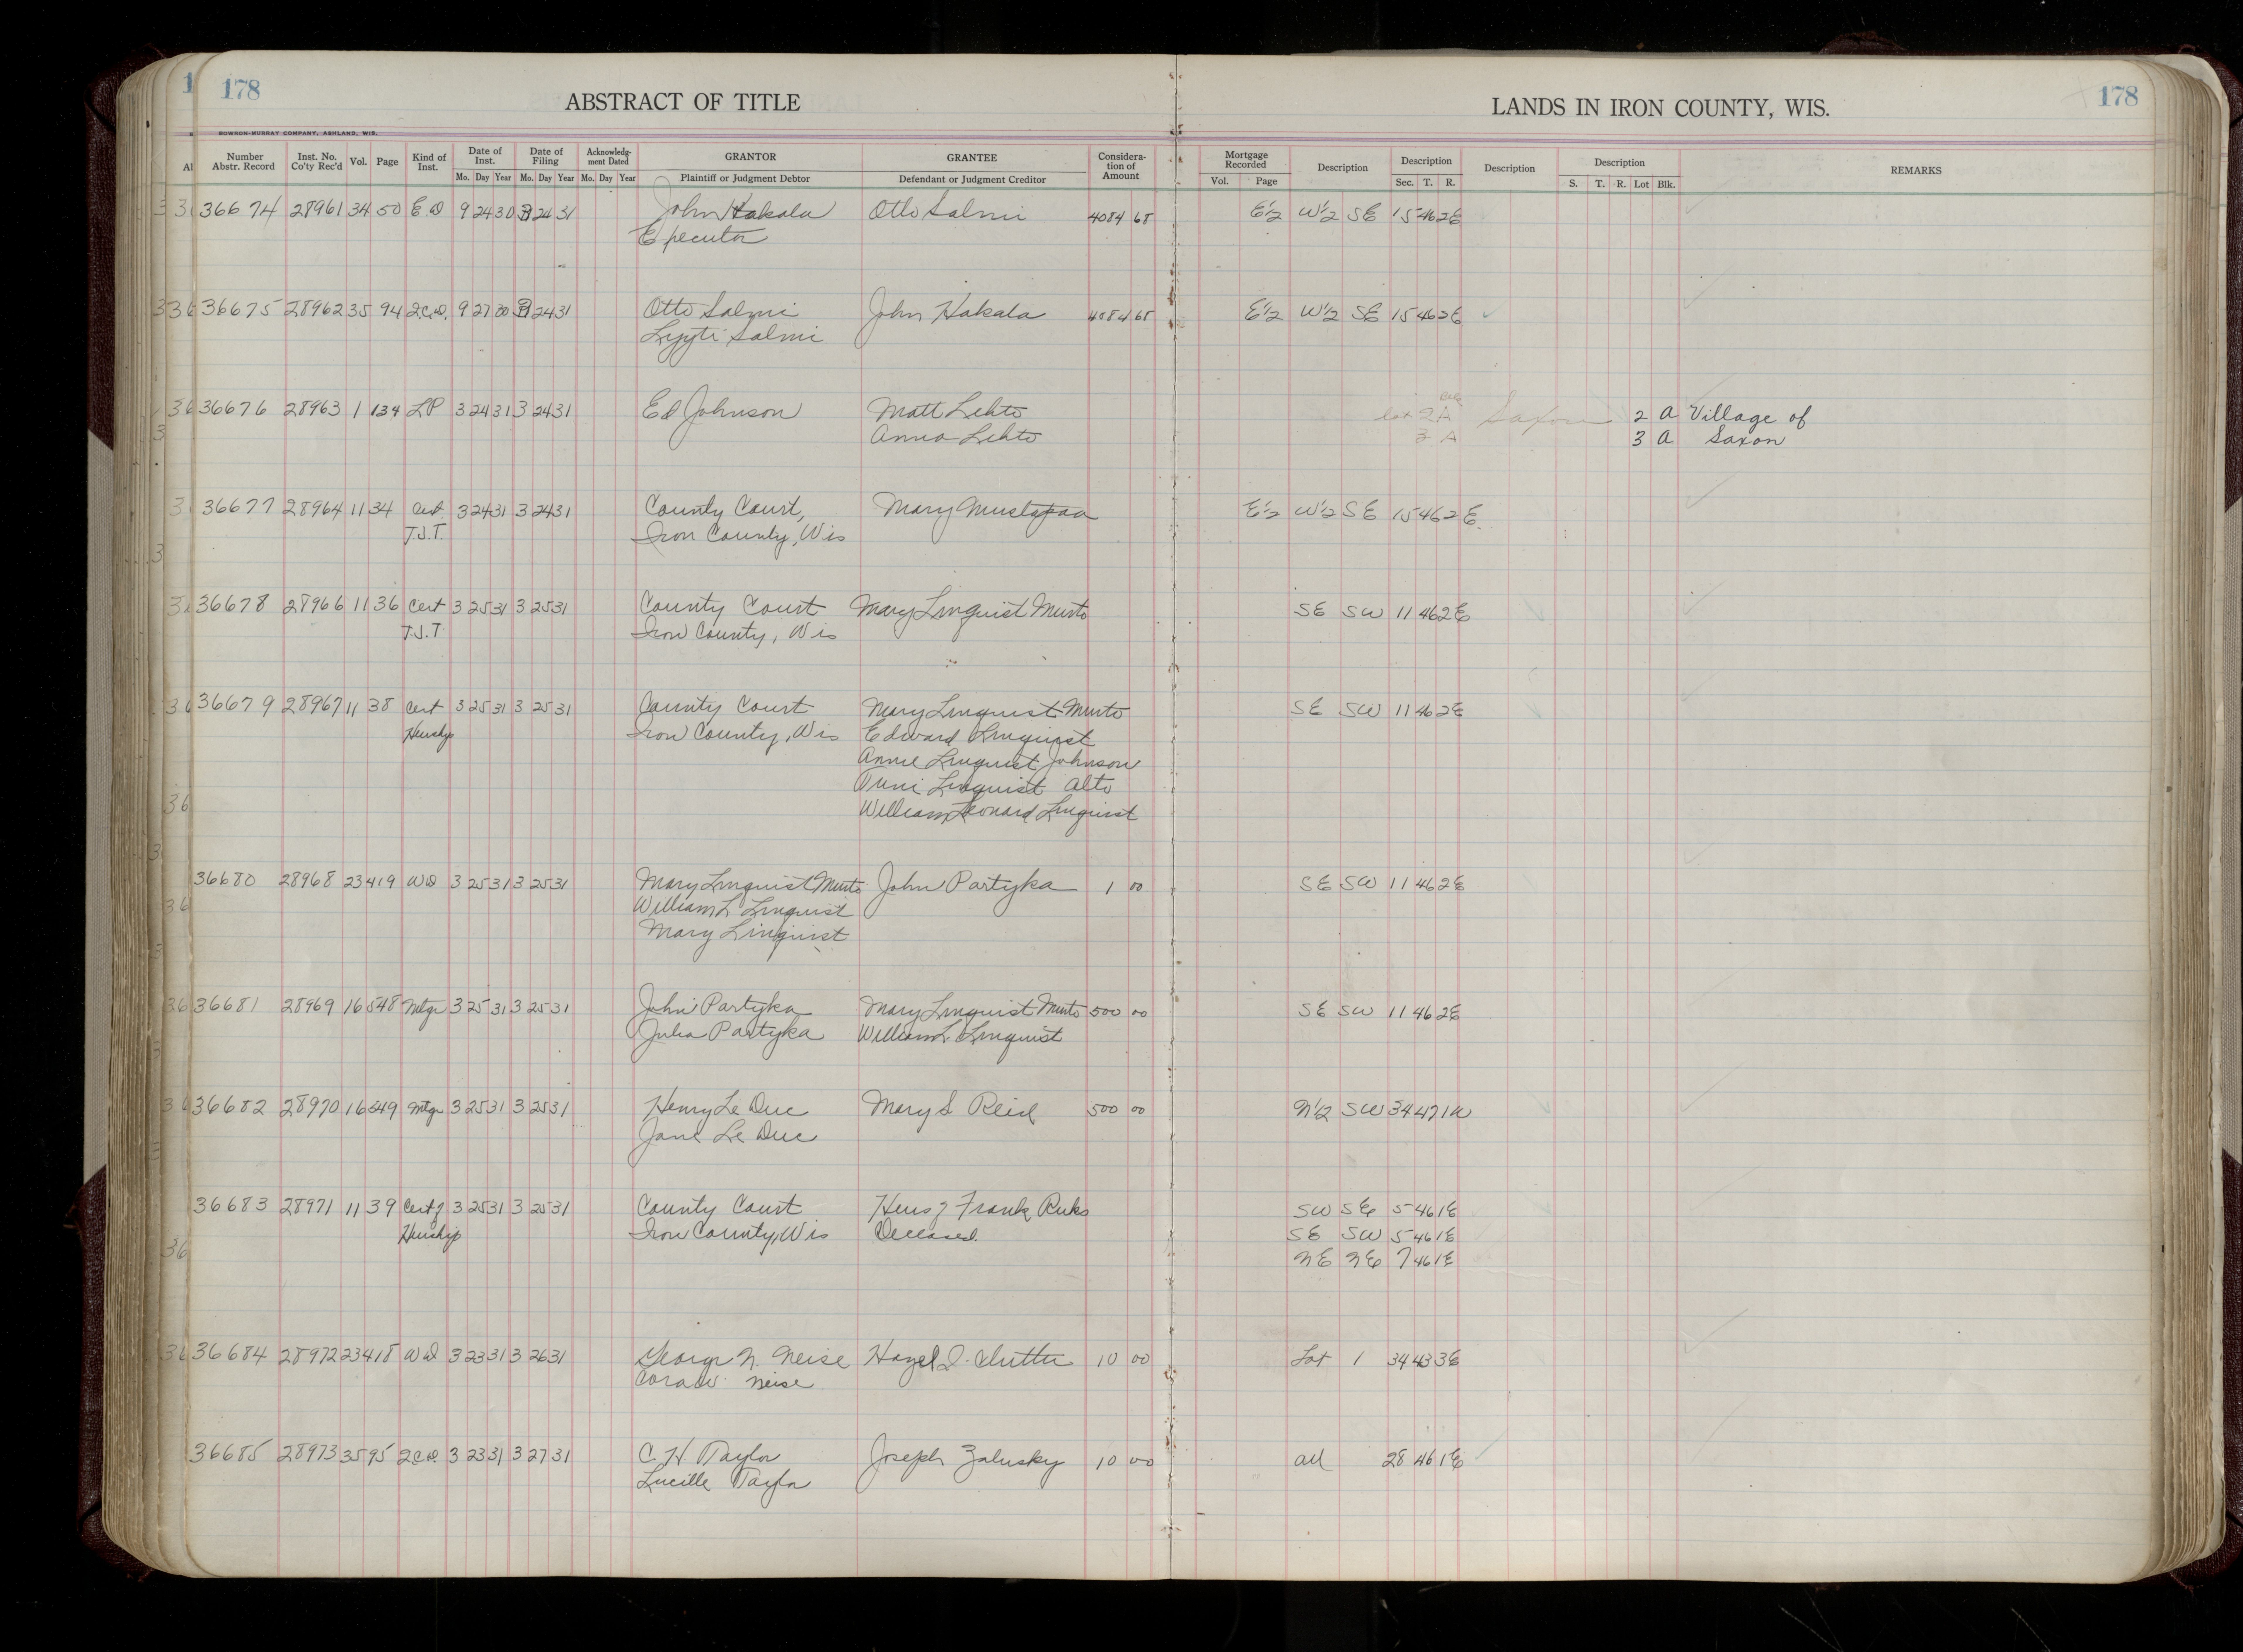 178
ABSTRACT OF TITLE
LANDS IN IRON COUNTY, WIS.
178
BOWRON-MURRAY COMPANY, ASHLAND, WIS.
Number Abstr. Record Inst. No. Co'ty Rec'd Vol. Page Kind of Inst. Date of Inst. Mo. Day Year Date of Filing Mo. Day Year Acknowledgment Dated Mo. Day Year GRANTOR Plaintiff or Judgment Debtor GRANTEE Defendant or Judgment Creditor Consideration of Amount Mortgage Recorded Vol. Page Description Description Sec. T. R. Description Description S. T. R. Lot Blk. REMARKS
36674 28961 34 50 E D 9 24 30 3 24 31 John Hakala Otto Salmi 4084 68 E½ W½ SE 15 46 2E
Executor
36675 28962 35 94 2.C.D. 9 27 30 3 24 31 Otto Salmi John Hakala 4084 68 E½ W½ SE 15 46 2E
Lyyti Salmi
36676 28963 1 134 LP 3 24 31 3 24 31 Ed Johnson Matt Lehto lot 2 A Saxon 2 A Village of
Anna Lehto 3 A 3 A Saxon
36677 28964 11 34 Cert 3 24 31 3 24 31 County Court, Mary Mustapaa E½ W½ SE 15 46 2E.
T.J.T. Iron County, Wis
36678 28966 11 36 Cert 3 25 31 3 25 31 County Court Mary Linquist Munto SE SW 11 46 2E
T.J.T. Iron County, Wis
36679 28967 11 38 Cert 3 25 31 3 25 31 County Court Mary Linquist Munto SE SW 11 46 2E
Heirship Iron County, Wis Edward Linquist
Annie Linquist Johnson
Linquist Alto
William Leonard Linquist
36680 28968 23 419 WD 3 25 31 3 25 31 Mary Linquist Munto John Partyka 1 00 SE SW 11 46 2E
William L Linquist
Mary Linquist
36681 28969 16 548 Mtge 3 25 31 3 25 31 John Partyka Mary Linquist Munto 500 00 SE SW 11 46 2E
Julia Partyka William L. Linquist
36682 28970 16 549 Mtge 3 25 31 3 25 31 Henry Le Duc Mary S Reid 500 00 N½ SW 34 47 1W
Jane Le Duc
36683 28971 11 39 Cert of 3 25 31 3 25 31 County Court Heirs of Frank Ruks SW SE 5 46 1E
Heirship Iron County, Wis Deceased. SE SW 5 46 1E
NE NE 7 46 1E
36684 28972 23 418 WD 3 23 31 3 26 31 George N. Neise Hazel 10 00 Lot 1 34 43 3E
Cora Neise
36685 28973 35 95 2CD. 3 23 31 3 27 31 C. H. Taylor Joseph Zalusky 10 00 all 28 46 1E
Lucille Taylor